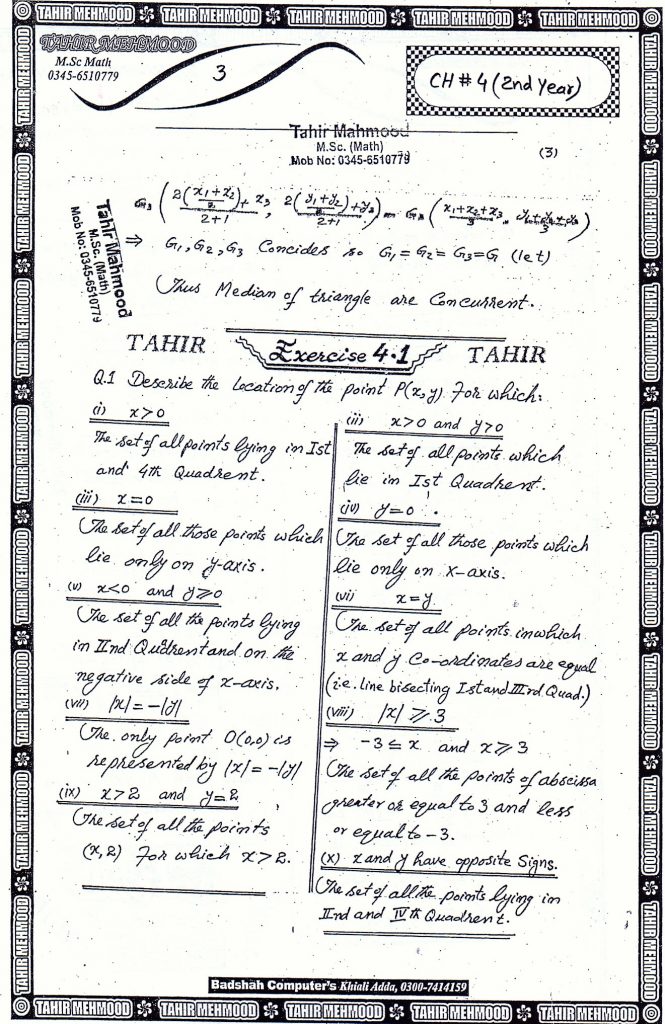 TAHIR MEHMOOD TAHIR MEHMOOD TAHIR MEHMOOD TAHIR MEHMOOD TAHIR MEHMOOD
TAHIR MEHMOOD
M.Sc Math
0345-6510779
3
CH # 4 (2nd Year)
Tahir Mahmood
M.Sc. (Math)
Mob No: 0345-6510779
(3)
Tahir Mahmood
M.Sc. (Math)
Mob No: 0345-6510779
G3 (2((x1+x2)/2)+x3 / 2+1, 2((y1+y2)/2)+y3 / 2+1) = G3 (x1+x2+x3 / 3, y1+y2+y3 / 3)
⇒ G1, G2, G3 Concides so G1 = G2 = G3 = G (let)
Thus Median of triangle are Concurrent.
TAHIR Exercise 4.1 TAHIR
Q.1 Describe the location of the point P(x,y) For which:
(i) x>0
The set of all points lying in Ist
and 4th Quadrent.
(iii) x=0
The set of all those points which
lie only on y-axis.
(v) x<0 and y⩾0
The set of all the points lying
in IInd Qudrent and on the
negative side of x-axis.
(vii) |x| = -|y|
The only point O(0,0) is
represented by |x| = -|y|
(ix) x>2 and y=2
The set of all the points
(x,2) For which x>2.
(ii) x>0 and y>0
The set of all points which
lie in Ist Quadrent.
(iv) y=0
The set of all those points which
lie only on X-axis.
(vi) x=y
The set of all points in which
x and y Co-ordinates are equal
(i.e. line bisecting Ist and IIIrd Quad.)
(viii) |x| ⩾ 3
⇒ -3 ≤ x and x ⩾ 3
The set of all the points of abscissa
greater or equal to 3 and less
or equal to -3.
(x) x and y have opposite Signs.
The set of all the points lying in
IInd and IVth Quadrent.
Badshah Computer's Khiali Adda, 0300-7414159
TAHIR MEHMOOD TAHIR MEHMOOD TAHIR MEHMOOD TAHIR MEHMOOD TAHIR MEHMOOD